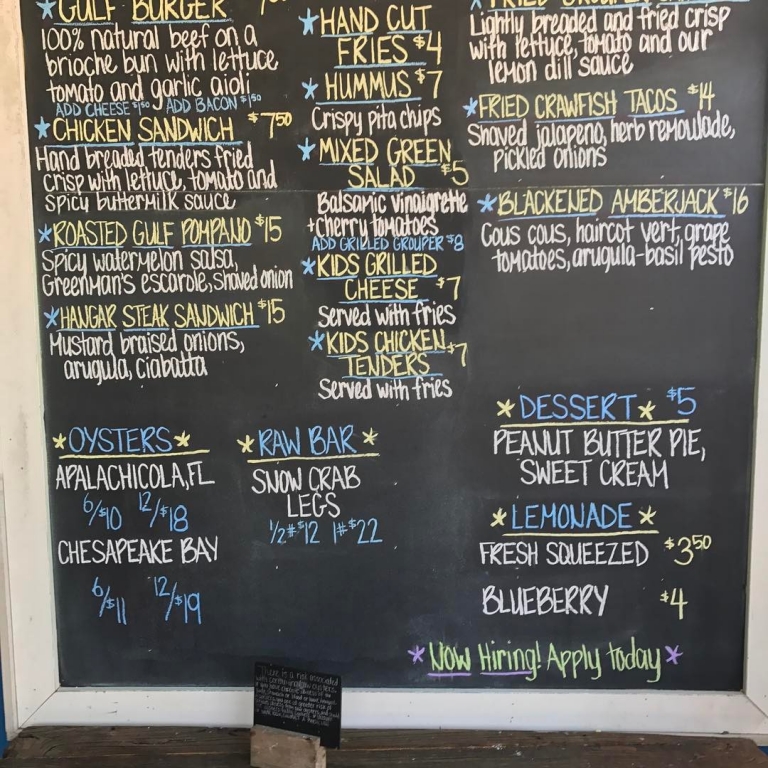 *GULF BURGER
100% natural beef on a
brioche bun with lettuce
tomato and garlic aioli
ADD CHEESE $1.50 ADD BACON $1.50
*CHICKEN SANDWICH $7.50
Hand breaded tenders fried
crisp with lettuce, tomato and
spicy buttermilk sauce
*ROASTED GULF POMPANO $15
Spicy watermelon salsa,
Greenman's escarole, shaved onion
*HANGAR STEAK SANDWICH $15
Mustard braised onions,
arugula, ciabatta
*HAND CUT
FRIES $4
*HUMMUS $7
Crispy pita chips
*MIXED GREEN
SALAD $5
Balsamic vinaigrette
+cherry tomatoes
ADD GRILLED GROUPER $8
*KIDS GRILLED
CHEESE $7
Served with fries
*KIDS CHICKEN
TENDERS $7
Served with fries
*FRIED GROUPER
Lightly breaded and fried crisp
with lettuce, tomato and our
lemon dill sauce
*FRIED CRAWFISH TACOS $14
Shaved jalapeno, herb remoulade,
pickled onions
*BLACKENED AMBERJACK $16
Cous cous, haircot vert, grape
tomatoes, arugula-basil pesto
*OYSTERS*
APALACHICOLA, FL
6/$10 12/$18
CHESAPEAKE BAY
6/$11 12/$19
*RAW BAR*
SNOW CRAB
LEGS
1/2#$12 1#$22
*DESSERT* $5
PEANUT BUTTER PIE,
SWEET CREAM
*LEMONADE*
FRESH SQUEEZED $3.50
BLUEBERRY $4
*Now Hiring! Apply today*
There is a risk associated